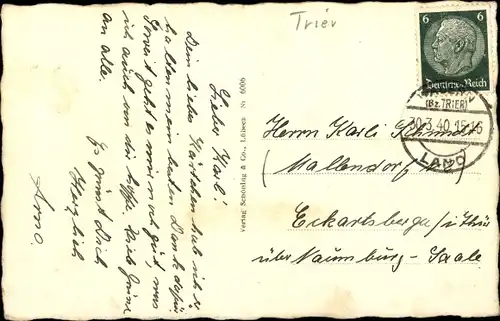 Trier
6 6
Deutsches Reich
(Bz. TRIER)
30.3.40.15-16
LAND
Lieber Karl!
Dein liebes Kärtchen hab ich
erhalten mein besten Dank dafür
Soweit geht es mir noch gut, was
ich auch von dir hoffe. Viele Grüße
an alle.
Es grüßt Dich
Herzlich
Arno.
Verlag Schöning & Co., Lübeck Nr 6006
Herrn Karli Schmidt
(Mallendorf)
Eckartsberga i/Thür
über Naumburg-Saale